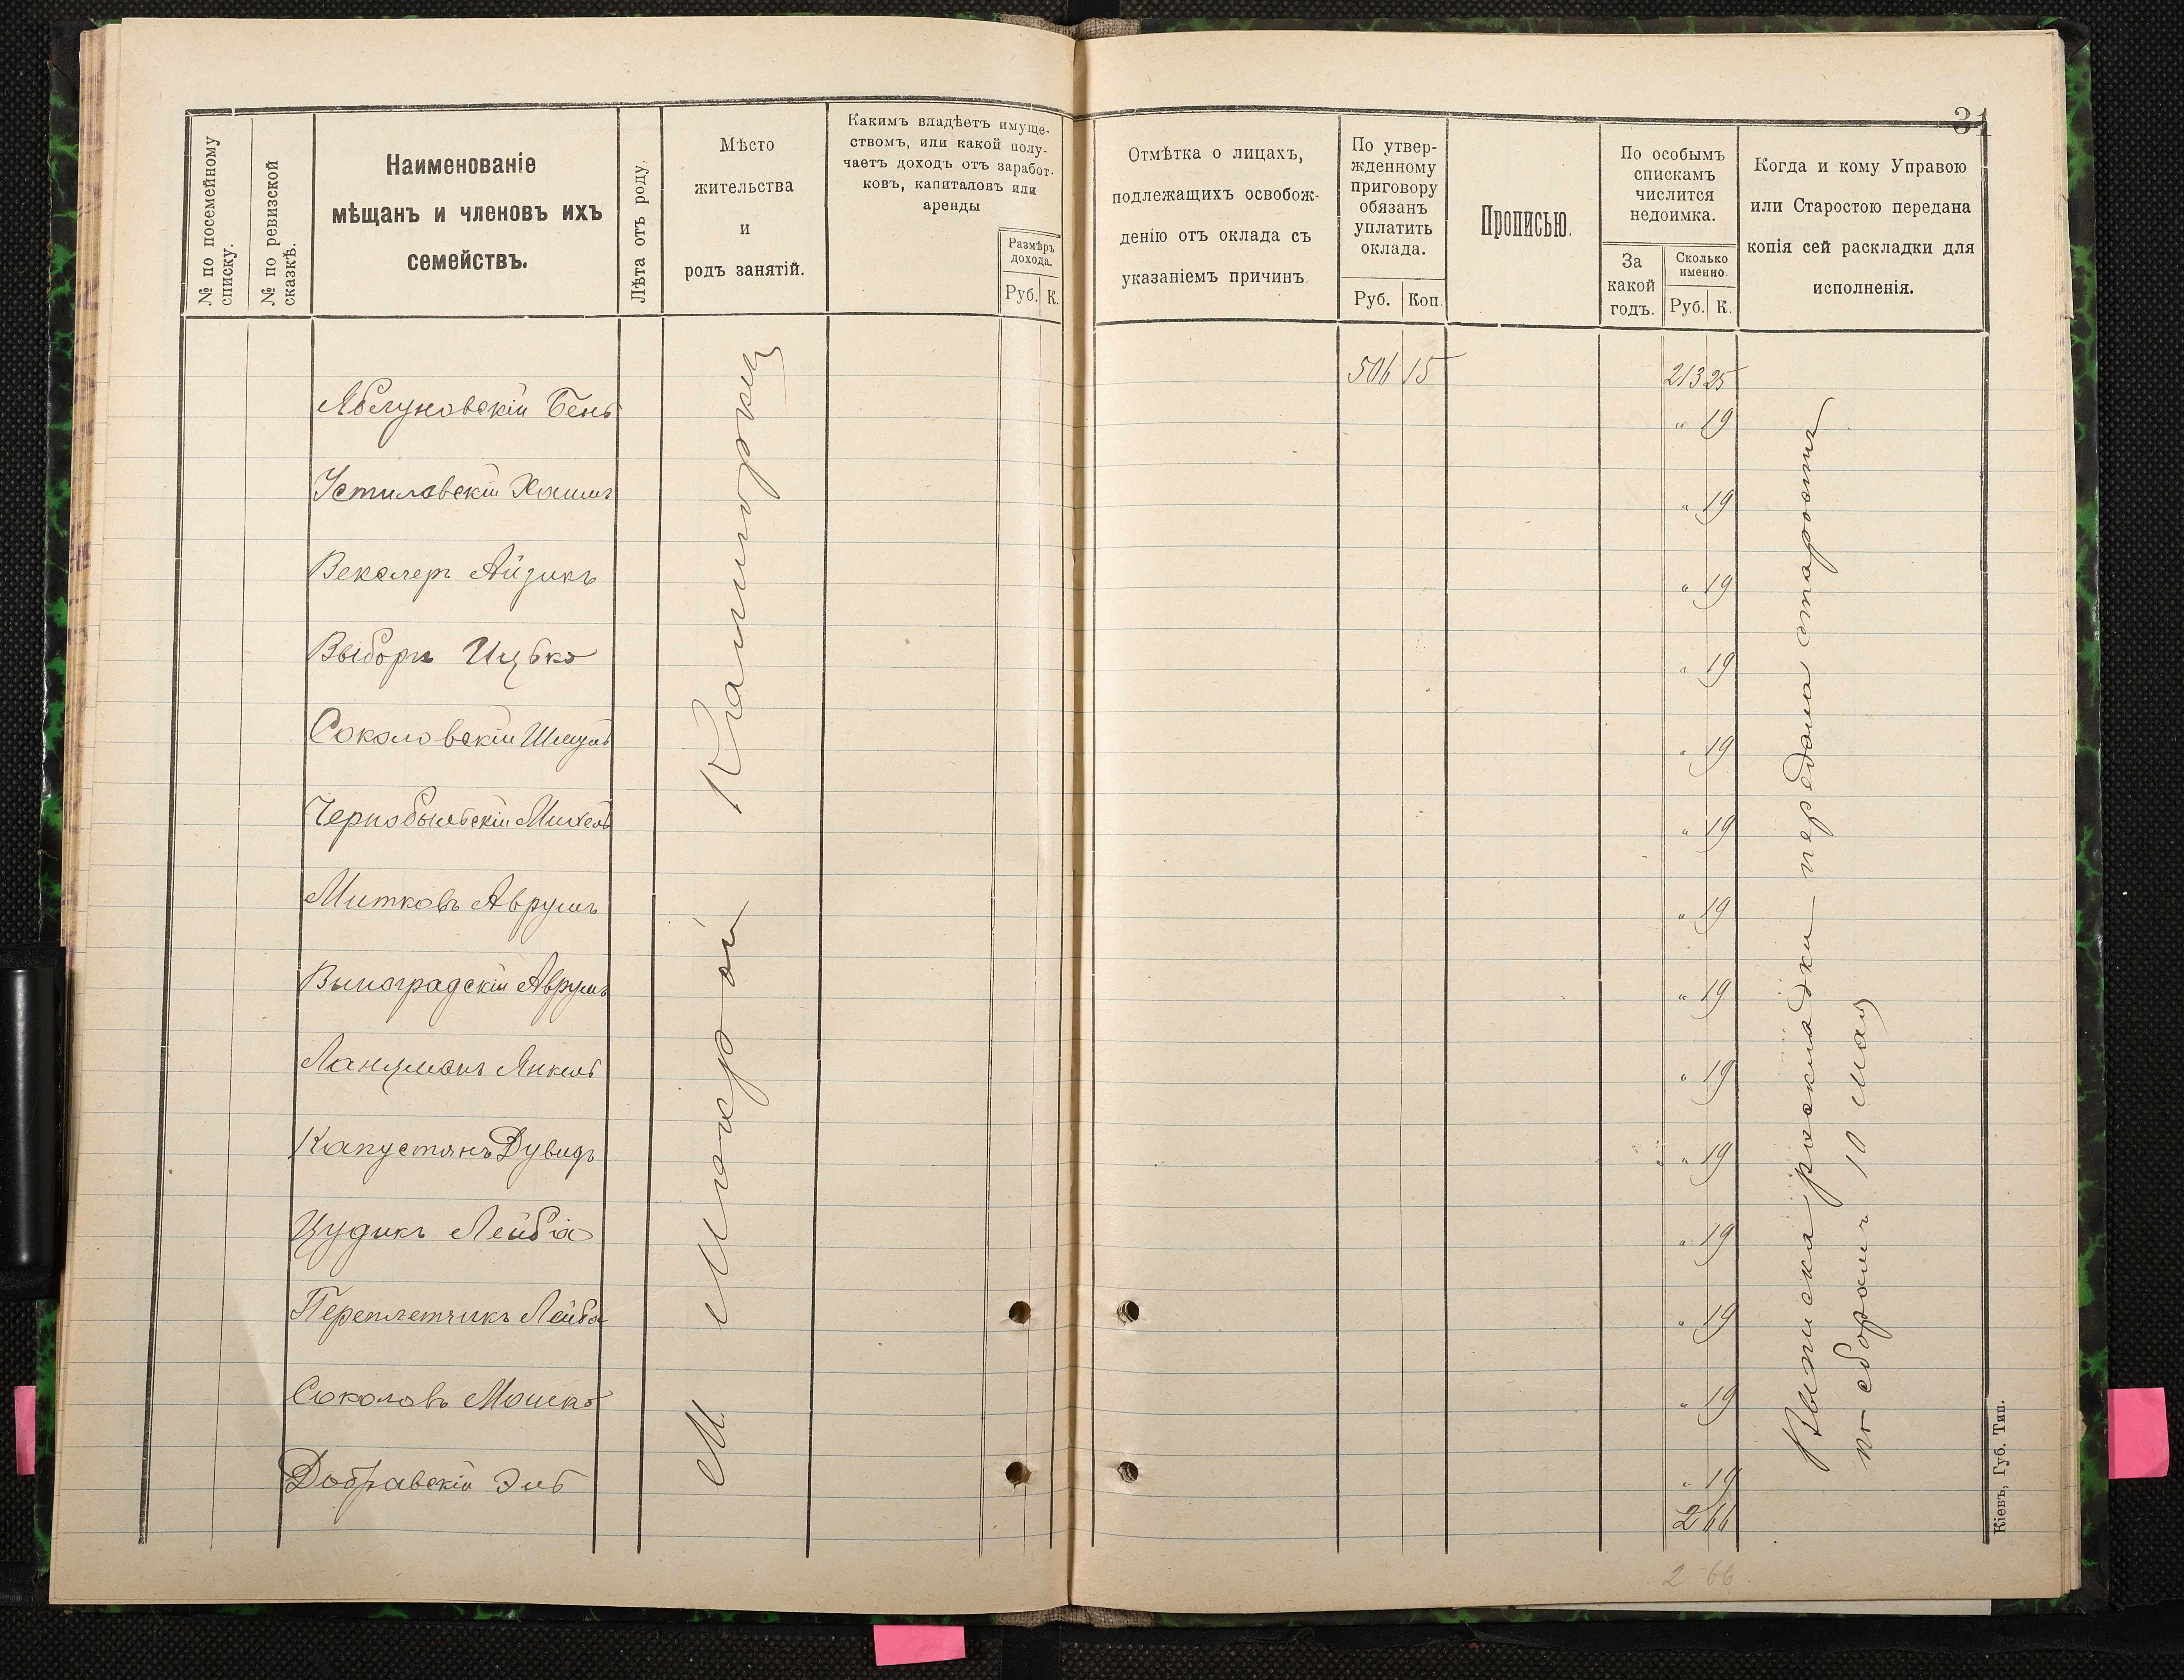 31
№ по посемейному списку.
№ по ревизской сказкѣ.
Наименованіе
мѣщанъ и членовъ ихъ
семействъ.
Лѣта отъ роду.
Мѣсто
жительства
и
родъ занятій.
Какимъ владѣетъ имуще-
ствомъ, или какой полу-
чаетъ доходъ отъ заработ-
ковъ, капиталовъ или
аренды
Размѣръ
дохода.
Руб. К.
Отмѣтка о лицахъ,
подлежащихъ освобож-
денію отъ оклада съ
указаніемъ причинъ.
По утвер-
жденному
приговору
обязанъ
уплатить
оклада.
Руб. Коп.
Прописью.
По особымъ
спискамъ
числится
недоимка.
За
какой
годъ.
Сколько
именно.
Руб. К.
Когда и кому Управою
или Старостою передана
копія сей раскладки для
исполненія.
506 15 213 25
Яблуновскій Бень " 19
Устиловскій Хаимъ " 19
Векслеръ Айзикъ " 19
Выборъ Ицько " 19
Соколовскій Шмуль " 19
Чернобыльскій Михель " 19
Митковъ Аврумъ " 19
Виноградскій Аврумъ " 19
Ланцманъ Янкель " 19
Капустянъ Дувидъ " 19
Цудикъ Лейба " 19
Переплетчикъ Лейба " 19
Соколовъ Мошко " 19
Добравскій Эль " 19
2 66
М Мокрой
Выписка раскладки передана старостѣ
по сборамъ 10 мая
Кіевъ, Губ. Тип.
2 66